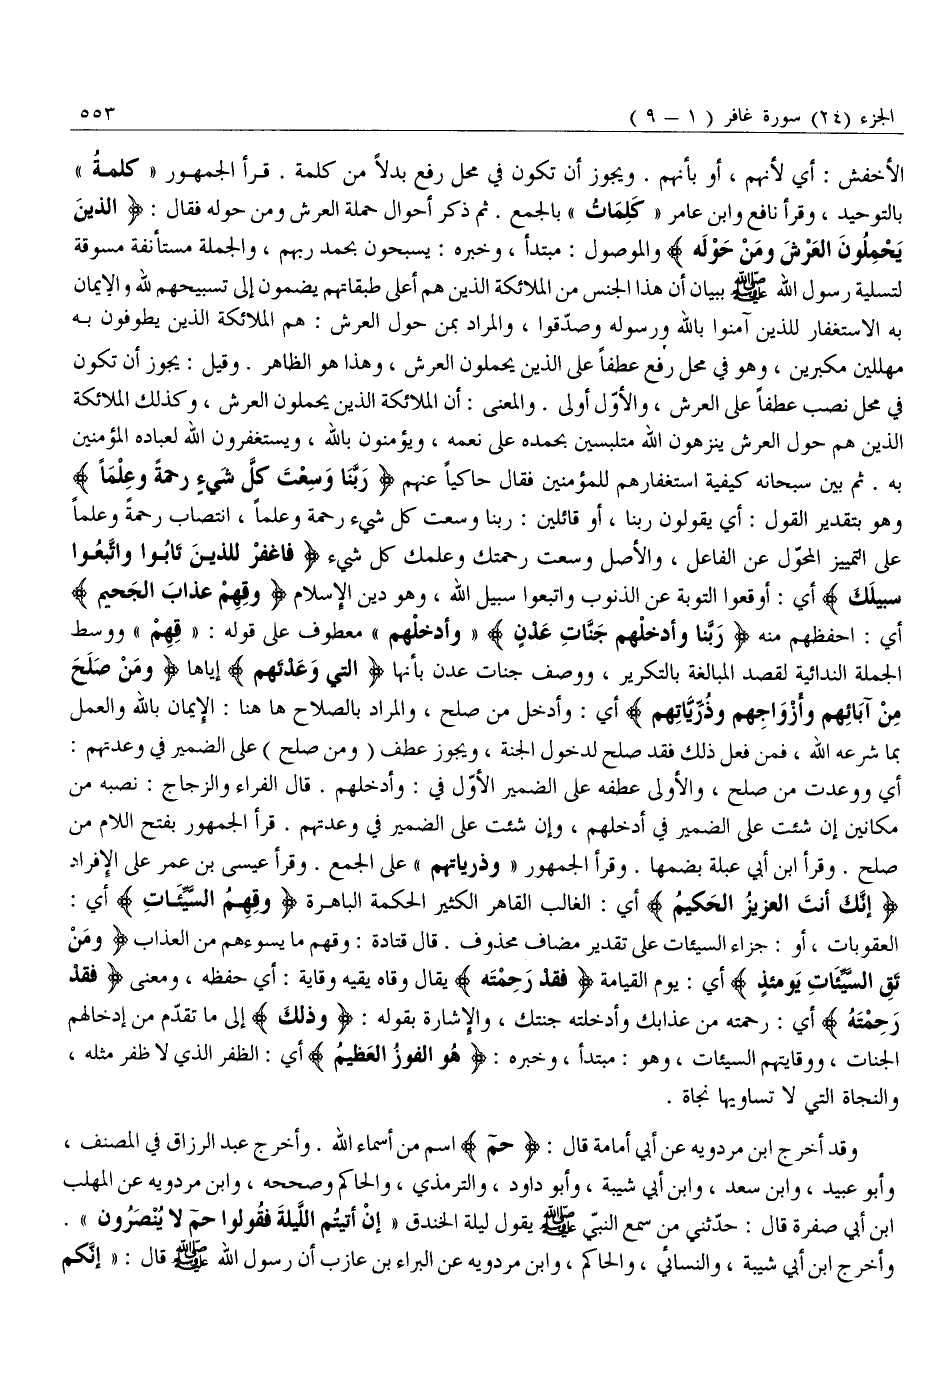 الجزء (٢٤) سورة غافر ( ١ – ٩ ) ٥٥٣
الأخفش : أي لأنهم ، أو بأنهم . ويجوز أن تكون في محل رفع بدلاً من كلمة . قرأ الجمهور « كلمةُ »
بالتوحيد ، وقرأ نافع وابن عامر « كَلِمَاتُ » بالجمع . ثم ذكر أحوال حملة العرش ومن حوله فقال : ﴿ الذينَ
يَحْمِلُونَ العَرْشَ ومَنْ حَوْلَه ﴾ والموصول : مبتدأ ، وخبره : يسبحون بحمد ربهم ، والجملة مستأنفة مسوقة
لتسلية رسول الله ﷺ ببيان أن هذا الجنس من الملائكة الذين هم أعلى طبقاتهم يضمون إلى تسبيحهم لله والإيمان
به الاستغفار للذين آمنوا بالله ورسوله وصدّقوا ، والمراد بمن حول العرش : هم الملائكة الذين يطوفون به
مهللين مكبرين ، وهو في محل رفع عطفاً على الذين يحملون العرش ، وهذا هو الظاهر . وقيل : يجوز أن تكون
في محل نصب عطفاً على العرش ، والأوّل أولى . والمعنى : أن الملائكة الذين يحملون العرش ، وكذلك الملائكة
الذين هم حول العرش ينزهون الله متلبسين بحمده على نعمه ، ويؤمنون بالله ، ويستغفرون الله لعباده المؤمنين
به . ثم بين سبحانه كيفية استغفارهم للمؤمنين فقال حاكياً عنهم ﴿ رَبَّنَا وَسِعْتَ كلَّ شَيءٍ رحمةً وعِلْمَاً ﴾
وهو بتقدير القول : أي يقولون ربنا ، أو قائلين : ربنا وسعت كل شيء رحمة وعلماً ، انتصاب رحمةً وعلماً
على التمييز المحوّل عن الفاعل ، والأصل وسعت رحمتك وعلمك كل شيء ﴿ فاغفرْ للذينَ تَابُوا واتَّبعُوا
سبيلَكَ ﴾ أي : أوقعوا التوبة عن الذنوب واتبعوا سبيل الله ، وهو دين الإسلام ﴿ وقِهِمْ عذابَ الجَحيم ﴾
أي : احفظهم منه ﴿ رَبَّنا وأدخلْهم جَنَّاتِ عَدْنٍ ﴾ « وأدخلْهم » معطوف على قوله : « قِهِمْ » ووسط
الجملة الندائية لقصد المبالغة بالتكرير ، ووصف جنات عدن بأنها ﴿ التي وَعَدْتَهم ﴾ إياها ﴿ ومَنْ صلَحَ
مِنْ آبَائِهم وأَزْوَاجِهم وذُرِّيَّاتِهم ﴾ أي : وأدخل من صلح ، والمراد بالصلاح ها هنا : الإيمان بالله والعمل
بما شرعه الله ، فمن فعل ذلك فقد صلح لدخول الجنة ، ويجوز عطف ( ومن صلح ) على الضمير في وعدتهم :
أي ووعدت من صلح ، والأولى عطفه على الضمير الأوّل في : وأدخلهم . قال الفراء والزجاج : نصبه من
مكانين إن شئت على الضمير في أدخلهم ، وإن شئت على الضمير في وعدتهم . قرأ الجمهور بفتح اللام من
صلح . وقرأ ابن أبي عبلة بضمها . وقرأ الجمهور « وذرياتهم » على الجمع . وقرأ عيسى بن عمر على الإفراد
﴿ إنَّكَ أنتَ العزيزُ الحَكيمُ ﴾ أي : الغالب القاهر الكثير الحكمة الباهرة ﴿ وقِهِمُ السَّيِّئَاتِ ﴾ أي :
العقوبات ، أو : جزاء السيئات على تقدير مضاف محذوف . قال قتادة : وقهم ما يسوءهم من العذاب ﴿ ومَنْ
تَقِ السَّيِّئَاتِ يَومئذٍ ﴾ أي : يوم القيامة ﴿ فقدْ رَحِمْتَه ﴾ يقال وقاه يقيه وقاية : أي حفظه ، ومعنى ﴿ فقدْ
رَحِمْتَهُ ﴾ أي : رحمته من عذابك وأدخلته جنتك ، والإشارة بقوله : ﴿ وذلكَ ﴾ إلى ما تقدّم من إدخالهم
الجنات ، ووقايتهم السيئات ، وهو : مبتدأ ، وخبره : ﴿ هُو الفوزُ العَظيمُ ﴾ أي : الظفر الذي لا ظفر مثله ،
والنجاة التي لا تساويها نجاة .
وقد أخرج ابن مردويه عن أبي أمامة قال : ﴿ حمٓ ﴾ اسم من أسماء الله . وأخرج عبد الرزاق في المصنف ،
وأبو عبيد ، وابن سعد ، وابن أبي شيبة ، وأبو داود ، والترمذي ، والحاكم وصححه ، وابن مردويه عن المهلب
ابن أبي صفرة قال : حدّثني من سمع النبيّ ﷺ يقول ليلة الخندق « إنْ أتيتُم اللَّيلةَ فقُولوا حمٓ لا يُنْصَرُون » .
وأخرج ابن أبي شيبة ، والنسائي ، والحاكم ، وابن مردويه عن البراء بن عازب أن رسول الله ﷺ قال : « إنَّكم